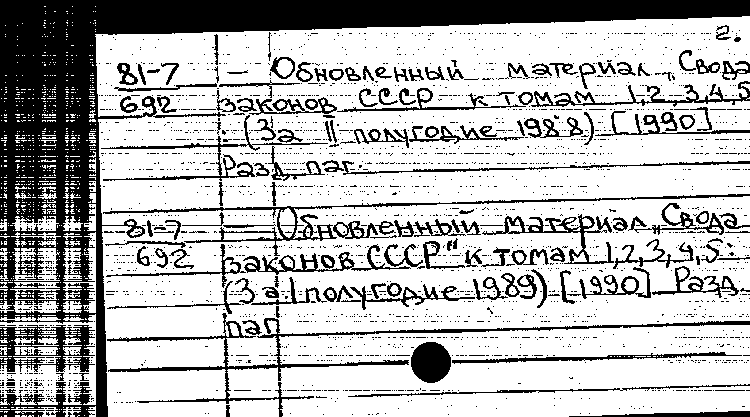 2.
81-7 — Обновленный материал „Свода
692 законов СССР к томам 1,2,3,4,5
: (За II полугодие 1988) [1990]
Разд. паг.
81-7 — Обновленный материал „Свода
692 законов СССР" к томам 1,2,3,4,5:
(За I полугодие 1989) [1990] Разд.
паг